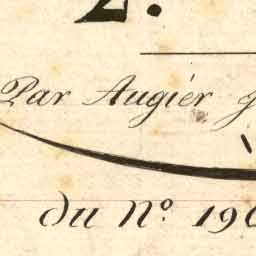 2.
Par Augiér
du N.º 190